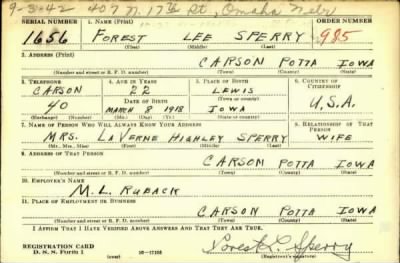 9-3-42 407 N. 17th St, Omaha Nebr
SERIAL NUMBER 1. NAME (Print) ORDER NUMBER
1656 FOREST LEE SPERRY 985
(First) (Middle) (Last)
2. ADDRESS (Print)
CARSON POTTA IOWA
(Number and street or R. F. D. number) (Town) (County) (State)
3. TELEPHONE 4. AGE IN YEARS 5. PLACE OF BIRTH 6. COUNTRY OF CITIZENSHIP
CARSON 22 LEWIS
(Town or county)
DATE OF BIRTH
40 MARCH 8 1918 IOWA U.S.A.
(Exchange) (Number) (Mo.) (Day) (Yr.) (State or country)
7. NAME OF PERSON WHO WILL ALWAYS KNOW YOUR ADDRESS 8. RELATIONSHIP OF THAT PERSON
MRS. LAVERNE HIGHLEY SPERRY WIFE
(Mr., Mrs., Miss) (First) (Middle) (Last)
9. ADDRESS OF THAT PERSON
CARSON POTTA IOWA
(Number and street or R. F. D. number) (Town) (County) (State)
10. EMPLOYER'S NAME
M. L. RUBACK
11. PLACE OF EMPLOYMENT OR BUSINESS
CARSON POTTA IOWA
(Number and street or R. F. D. number) (Town) (County) (State)
I AFFIRM THAT I HAVE VERIFIED ABOVE ANSWERS AND THAT THEY ARE TRUE.
REGISTRATION CARD
D. S. S. Form 1 (over) 16-17105 Forest L. Sperry
(Registrant's signature)